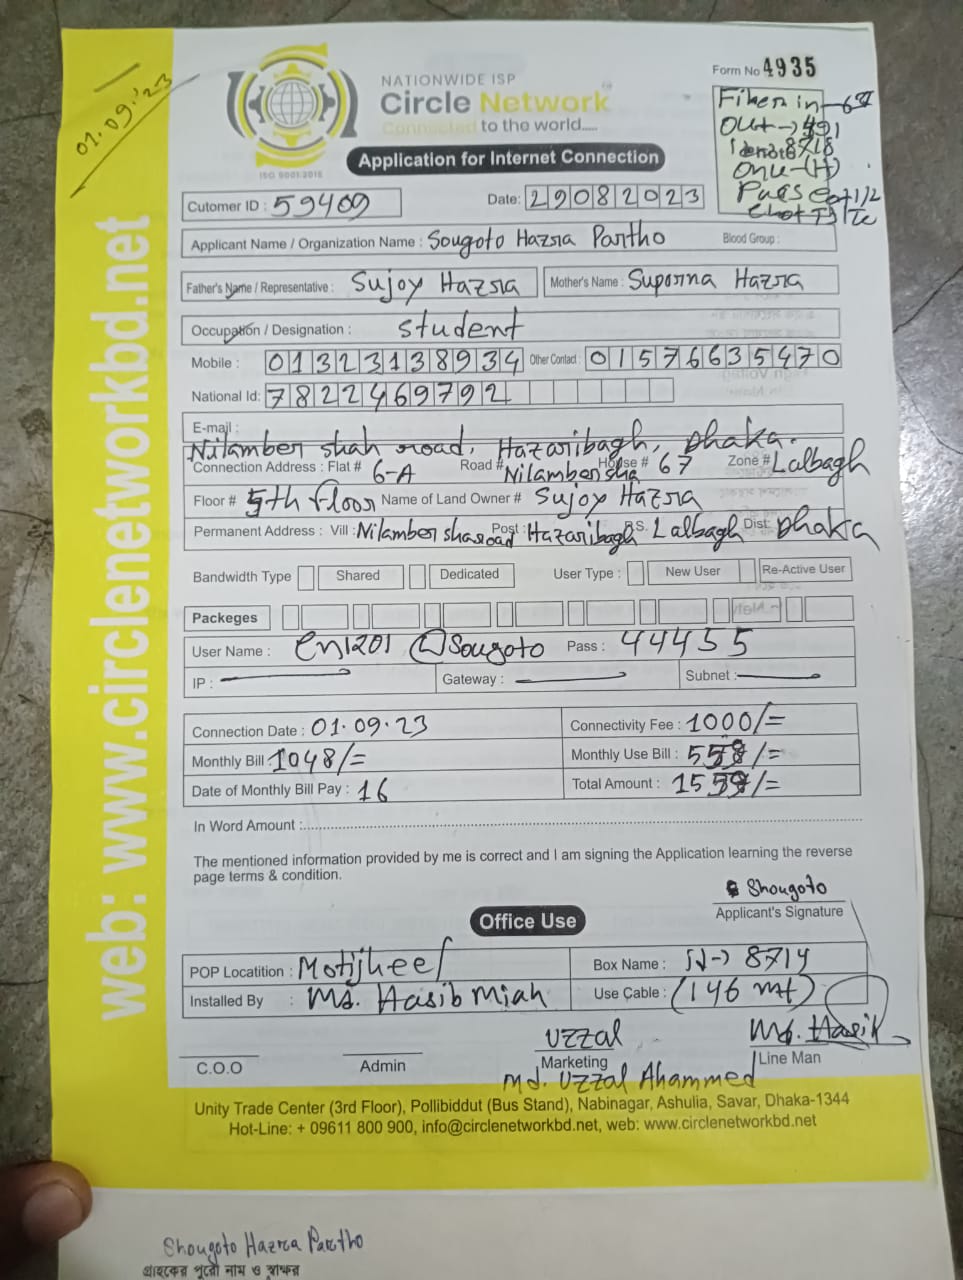 01.09.'23
NATIONWIDE ISP
Circle Network
Connected to the world.....
ISO 9001:2015
Form No 4935
Fiber in - 651
Out -> 491
8718
Onu - (H)
Application for Internet Connection
Cutomer ID : 59409
Date: 29082023
Applicant Name / Organization Name : Sougoto Hazra Partho Blood Group :
Father's Name / Representative : Sujoy Hazra
Mother's Name : Suporna Hazra
Occupation / Designation : Student
Mobile : 01323138934 Other Contact : 01576635470
National Id: 7822469792
E-mail :
Nilamber shah road, Hazaribagh, Dhaka.
Connection Address : Flat # 6-A Road # Nilamber sha House # 67 Zone # Lalbagh
Floor # 5th floor Name of Land Owner # Sujoy Hazra
Permanent Address : Vill : Nilamber sha road Post : Hazaribagh P.S. Lalbagh Dist: Dhaka
Bandwidth Type Shared Dedicated User Type : New User Re-Active User
Packeges
User Name : cn1201@Sougoto Pass : 44455
IP : Gateway : Subnet :
Connection Date : 01.09.23 Connectivity Fee : 1000/=
Monthly Bill : 1048/= Monthly Use Bill : 558/=
Date of Monthly Bill Pay : 16 Total Amount : 1559/=
In Word Amount :
The mentioned information provided by me is correct and I am signing the Application learning the reverse
page terms & condition.
Shougoto
Applicant's Signature
Office Use
POP Locatition : Motijheel Box Name : 8714
Installed By : Md. Hasib Miah Use Çable : (146 mt)
Uzzal Md. Hasib
C.O.O Admin Marketing Line Man
Md. Uzzal Ahammed
Unity Trade Center (3rd Floor), Pollibiddut (Bus Stand), Nabinagar, Ashulia, Savar, Dhaka-1344
Hot-Line: + 09611 800 900, info@circlenetworkbd.net, web: www.circlenetworkbd.net
web: www.circlenetworkbd.net
Shougoto Hazra Partho
গ্রাহকের পুরো নাম ও স্বাক্ষর